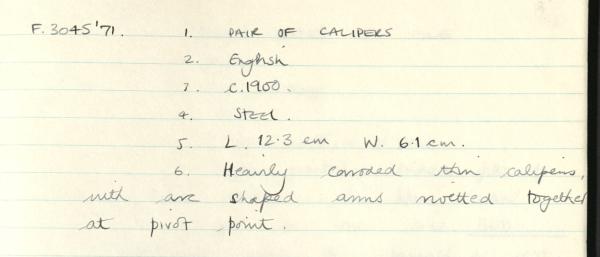 F.3045'71. 1. PAIR OF CALIPERS
2. English
3. c.1900.
4. STEEL.
5. L. 12.3 cm W. 6.1 cm.
6. Heavily corroded thin calipers,
with arc shaped arms rivetted together
at pivot point.